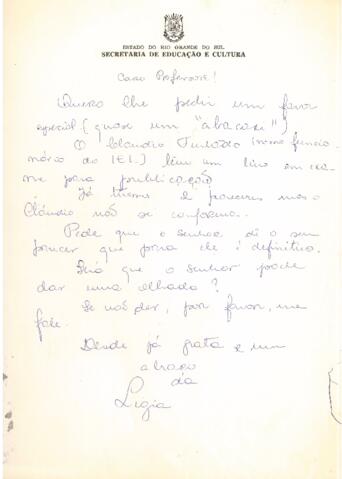 ESTADO DO RIO GRANDE DO SUL
SECRETARIA DE EDUCAÇÃO E CULTURA
Caro Professor!
Quero lhe pedir um favor
especial (quase um "abacaxi")
O Cláudio Furtado (nosso funcio-
nário do IEL) tem um livro em exa-
me para publicação.
Já temos 2 pareceres mas o
Cláudio não se conforma.
Pede que o senhor dê o seu
parecer que para ele é definitivo.
Será que o senhor pode
dar uma olhada?
Se não der, por favor, me
fale.
Desde já grata e um
abraço
da
Ligia